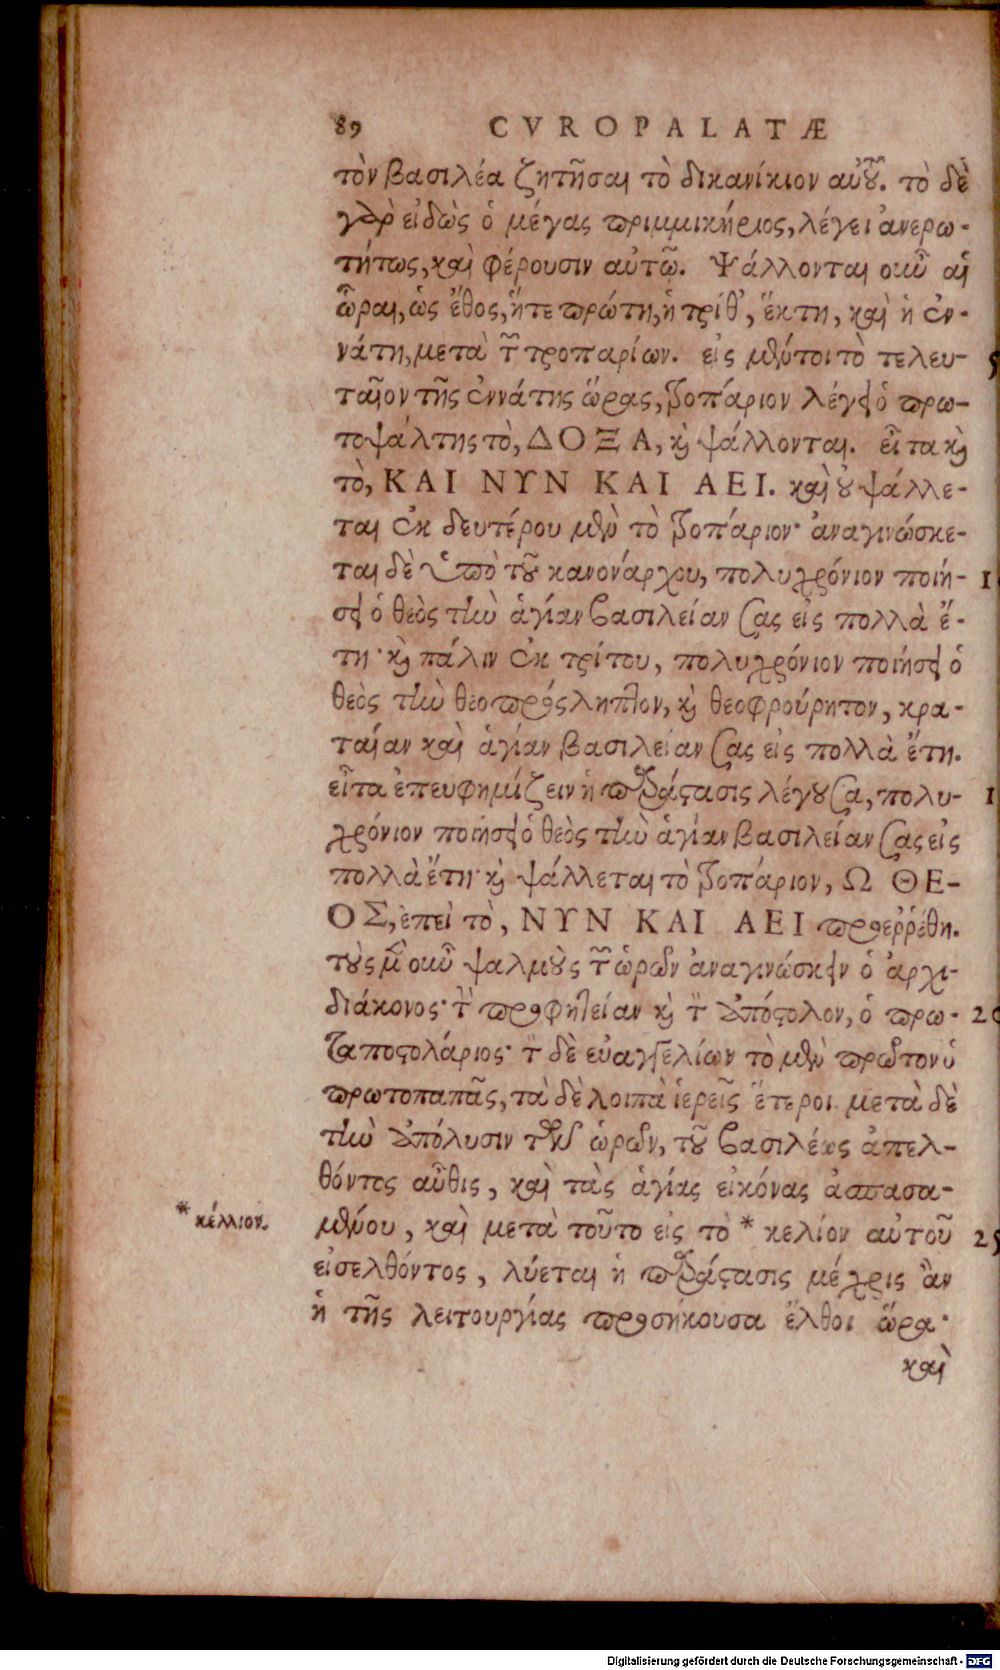 89 CVROPALATÆ
τὸν βασιλέα ζητῆσαι τὸ δικανίκιον αὐτοῦ. τὸ δὲ
γὰρ εἰδὼς ὁ μέγας πριμμικήριος, λέγει ἀνερω-
τήτως, καὶ φέρουσιν αὐτῷ. Ψάλλονται οὖν αἱ
ὧραι, ὡς ἔθος, ἥτε πρώτη, ἡ τρίτη, ἕκτη, καὶ ἡ ἐν-
νάτη, μετὰ τῶν τροπαρίων. εἰς μέντοι τὸ τελευ- 5
ταῖον τῆς ἐννάτης ὥρας, τροπάριον λέγει ὁ πρω-
τοψάλτης τὸ, ΔΟΞΑ, καὶ ψάλλονται. εἶτα καὶ
τὸ, ΚΑΙ ΝΥΝ ΚΑΙ ΑΕΙ. καὶ οὐ ψάλλε-
ται ἐκ δευτέρου μὲν τὸ τροπάριον· ἀναγινώσκε-
ται δὲ ὑπὸ τοῦ κανονάρχου, πολυχρόνιον ποιή- 1
σει ὁ θεὸς τὴν ἁγίαν βασιλείαν σας εἰς πολλὰ ἔ-
τη· καὶ πάλιν ἐκ τρίτου, πολυχρόνιον ποιήσει ὁ
θεὸς τὴν θεοπρόσληπτον, καὶ θεοφρούρητον, κρα-
ταίαν καὶ ἁγίαν βασιλείαν σας εἰς πολλὰ ἔτη.
εἶτα ἐπευφημίζειν ἡ παράστασις λέγουσα, πολυ- 1
χρόνιον ποιήσει ὁ θεὸς τὴν ἁγίαν βασιλείαν σας εἰς
πολλὰ ἔτη· καὶ ψάλλεται τὸ τροπάριον, Ω ΘΕ-
ΟΣ, ἐπεὶ τὸ, ΝΥΝ ΚΑΙ ΑΕΙ προεῤῥέθη.
τοὺς μὲν οὖν ψαλμοὺς τῶν ὡρῶν ἀναγινώσκειν ὁ ἀρχι-
διάκονος· τὴν προφητείαν καὶ τὸν ἀπόστολον, ὁ πρω- 20
ταποστολάριος· τῶν δὲ εὐαγγελίων τὸ μὲν πρῶτον ὁ
πρωτοπαπᾶς, τὰ δὲ λοιπὰ ἱερεῖς ἕτεροι. μετὰ δὲ
τὴν ἀπόλυσιν τῶν ὡρῶν, τοῦ βασιλέως ἀπελ-
θόντος αὖθις, καὶ τὰς ἁγίας εἰκόνας ἀσπασα-
* κέλλιον.
μένου, καὶ μετὰ τοῦτο εἰς τὸ * κελίον αὐτοῦ 25
εἰσελθόντος, λύεται ἡ παράστασις μέχρις ἂν
ἡ τῆς λειτουργίας προσήκουσα ἔλθοι ὥρα·
καὶ
Digitalisierung gefördert durch die Deutsche Forschungsgemeinschaft - DFG